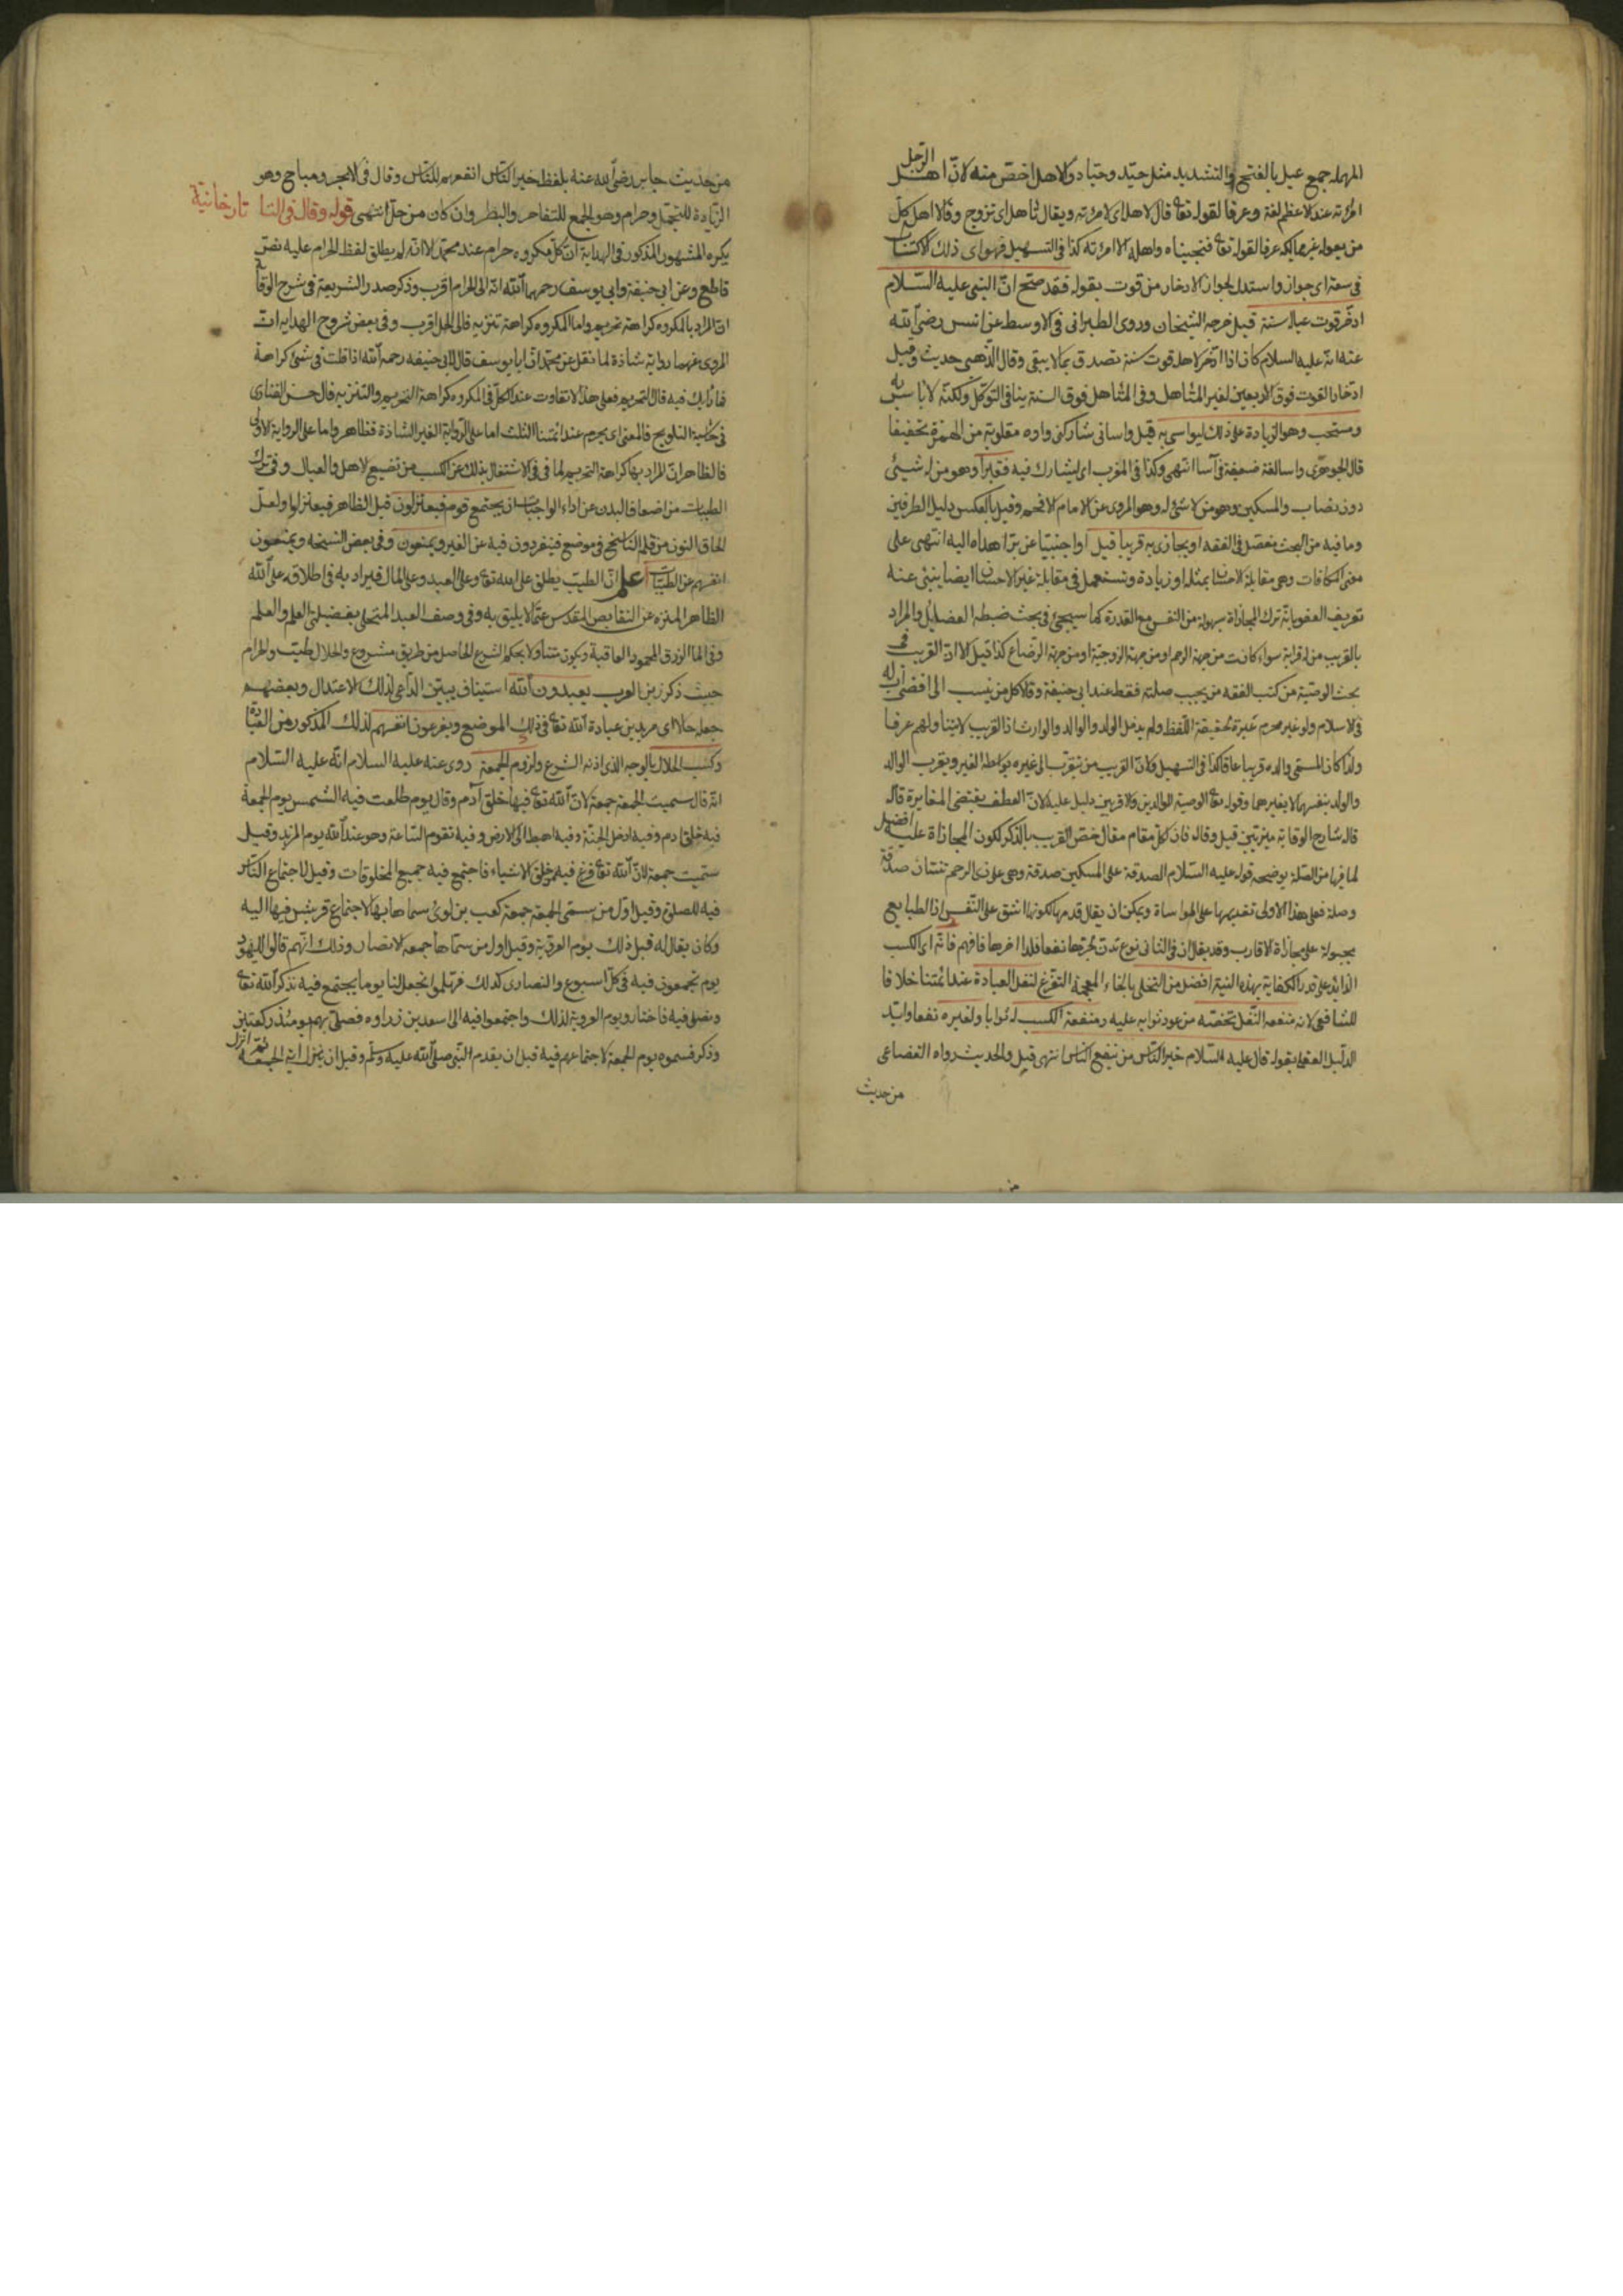 المهملة جمع عيل بالفتح والتشديد مثل جيّد وجياد والاهل اخصّ منه لانّ اهل الرّجل
امرأته عند الاعظم لغة وعرفا لقوله تعا قال لاهله اى لامرئته ويقال تأهل اى تزوج وقالا اهل كلّ
من يعوله غير مماليكه عرفا لقوله تعا فنجيناه واهله الا امرئته كذا فى التسهيل فهو اى ذلك الاكتساب
فى سعة اى جواز واستدل لجواز الادخار من قوت بقوله فقد صحّ انّ النبى عليه السّلام
ادخّر قوت عياله سنة قيل خرجه الشيخان وروى الطبرانى فى الاوسط عن انس رضى الله
عنه انه عليه السلام كان اذا ادّخر لاهله قوت سنة تصدق بما لا يبقى وقال الذّهبى حديث وقيل
ادّخار القوت فوق الاربعين لغير المتأهل وفى المتأهل فوق السنة ينافى التوكّل ولكنّه لا بأس به
ومستحب وهو الزيادة على ذلك ليواسى به قيل واسانى شاركنى واوه مقلوبة من الهمزة تخفيفا
قال الجوهرى واسا لغة ضعيفة فى آسا انتهى وكذا فى المغرب اى ليشارك فيه فقيرا وهو من له شيئ
دون نصاب والمسكين وهو من لا شئ له وهو المروى عن الامام الافخم وقيل بالعكس دليل الطرفين
وما فيه من البحث مفصّل فى الفقه او يجازى به قريبا قيل او اجنبيّا عن برّ اهداه اليه انتهى على
معنى المكافات وهى مقابلة الاحسان بمثله او زيادة وتستعمل فى مقابلة غير الاحسان ايضا ينبئ عنه
تعريف العفو بانّه ترك المجازاة بسهولة من النفس مع القدرة كما سيجئ فى بحث ضبطه الفضائل والمراد
بالقريب من له قرابة سواء كانت من جهة الرحم او من جهة الزوجيّة او من جهة الرضاع كذا قيل الا انّ القريب فى
بحث الوصيّة من كتب الفقه من يجب صلته فقط عند ابى حنيفة وقالا كل من نسب الى اقصى اب له
فى الاسلام ولو غير محرم عبرة لحقيقة اللّفظ ولم يدخل الولد والوالد والوارث اذ القريب لا يتناولهم عرفا
ولذا كان المسمّى والده قريبا عاقا كذا فى التسهيل ولانّ القريب من تقرّب الى غيره بواسطة الغير وتقرب الوالد
والولد بنفسهما لا بغيرهما وقوله تعا الوصية للوالدين والاقربين دليل عليه لانّ العطف يقتضى المغايرة قاله
قاله شارح الوقاية قيل وقاله فان كلّ مقام مقال خصّ القريب بالذكر لكون المجازاة عليه افضل
لما فيها من الصّلة يوضحه قوله عليه السّلام الصدقة على المسكين صدقة وهى على ذى الرحم ثنتان صدقة
وصلة فعلى هذا الاولى تقديمها على المواساة ويمكن ان يقال قدمها لكونها اشق على النّفس اذ الطبايع
مجبولة على مجازاة الاقارب وقد يقال ان فى الثانى نوع تدنّ لجرّها نفعا فلذا اخرها فافهم فانّه اى الكسب
الزائد على قدر الكفاية بهذه النية افضل من التخلى بالخاء المعجمة التفرّغ لنفل العبادة عند ائمتنا خلافا
للشافعى لانه منفعة النّفل تخصّه من يعود ثوابه عليه ومنفعة الكسب له ثوابا ولغيره نفعا وايّد
الدليل العقلى بقوله قال عليه السّلام خير النّاس من ينفع النّاس انتهى قيل والحديث رواه القضاعى
من حديث
من حديث جابر رضى الله عنه بلفظ خير النّاس انفعهم للنّاس وقال فى الابحر ومباح وهو
الزيادة للتجمّل وحرام وهو الجمع للتفاخر والبطر وان كان من حلّ انتهى قوله وقال فى التا تارخانيّة
يكره المشهور المذكور فى الهداية انّ كلّ مكروه حرام عند محمّد الا انّه لم يطلق لفظ الحرام عليه نصّ
قاطع وعن ابى حنيفة وابى يوسف رحمهما الله انّه الى الحرام اقرب وذكر صدر الشريعة فى شرح الوقاية
انّ المراد بالمكروه كراهة تحريم واما المكروه كراهة تنزيه فالى الحل اقرب وفى بعض شروح الهدايه انّ
المروى عنهما رواية شاذة لما نقل عن محمّد انّ ابا يوسف قال لابى حنيفه رحمه الله اذا قلت فى شئ كراهة
فما رأيك فيه قال التحريم فعلى هذا لا تفاوت عند الكلّ فى المكروه كراهة التحريم والتنزيه قال حسن الفنارى
فى حاشية التلويح فالمعنى اى يحرم عند ائمتنا الثلث اما على الرّواية الغير الشاذة فظاهر واما على الرواية الاولى
فالظاهر انّ المراد بها كراهة التحريم لما فى الاشتغال بذلك عن الكسب من تضييع الاهل والعيال وفى ترك
الطيبات من اضعاف البدن عن اداء الواجبات ان يجتمع قوم فيعتزلون قيل الظاهر فيعتزلوا ولعلّ
الحاق النون من قلم النّاسخ فى موضع فينفردون فيه عن الغير ويمتنعون وفى بعض النسخه ويمنعون
انفسهم عن الطيّبات اعلم انّ الطيّب يطلق على الله تعا وعلى العبد وعلى المال فيراد به فى اطلاقه على الله
الظاهر المنزه عن النقايص المقدس عمّا لا يليق به وفى وصف العبد المتحلى بفضيلتى العلم والعلم
وفى المال الرزق المحمود العاقبة ويكون متناولا بحكم الشرع الحاصل من طريق مشروع والحلال طيّب والحرام
خبيث ذكر زين العرب يعبدون الله استيناف يبيّن الدّاعى لذلك الاعتزال وبعضهم
جعل حالا اى مريدين عبادة الله تعا فى ذلك الموضع ويفرغون انفسهم لذلك المذكور من العبادة
وكسب الحلال بالوجه الذى اذنه الشرع ولزوم الجمعة روى عنه عليه السلام انّه عليه السّلام
انّه قال سميت الجمعة جمعة لانّ الله تعا فيها خلق آدم وقال يوم طلعت فيه الشّمس يوم الجمعة
فيه خلق ادم وفيه ادخل الجنّة وفيه اهبط الى الارض وفيه تقوم السّاعة وهو عند الله يوم المزيد وقيل
سمّيت جمعة لانّ الله تعا فرغ فيه من خلق الاشياء فاجتمع فيه جميع المخلوقات وقيل لاجتماع النّاس
فيه للصلوة وقيل اوّل من سمّى الجمعة جمعة كعب بن لوئ سماها بها لاجتماع قريش فيها اليه
وكان يقال له قبل ذلك يوم العروبة وقيل اول من سمّاها جمعه الانصار وذلك انّهم قالوا لليهود
يوم تجمعون فيه فى كلّ اسبوع والنصارى كذلك فهلموا نجعل لنا يوما يجتمع فيه نذكر الله تعا
ونصلى فيه فاختاروا يوم العروبة لذلك واجتمعوا فيه الى سعد بن زراره فصلّى بهم يومئذ ركعتين
وذكر فسموه يوم الجمعة لاجتماعهم فيه قبل ان يقدم النّبى صلّى الله عليه وسلّم وقبل ان ينزل اية الجمعة ثمّ انزل